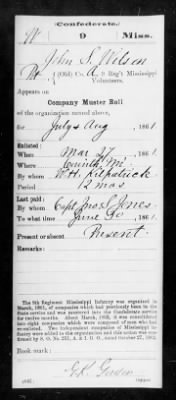 Confederate.
W 9 Miss.
John S. Wilson
Pvt (Old) Co. A, 9 Reg't Mississippi
Volunteers.
Appears on
Company Muster Roll
of the organization named above,
for July & Aug, 1861.
Enlisted:
When Mar 27, 1861.
Where Corinth, Mi.
By whom
Period 12 mos
Last paid:
By whom Capt. Jones
To what time June 30, 1861.
Present or absent Present
Remarks:
The 9th Regiment Mississippi Infantry was organized in
March, 1861, of companies which had previously been in the
State service and was mustered into the Confederate service
for twelve months. About March, 1862, it was consolidated
into eight companies which were composed of men who had
re-enlisted. Two independent companies of Mississippi in-
fantry were added to the organization and this action was con-
firmed by S. O. No. 252, A. & I. G. O., dated October 27, 1862.
Book mark:
Copyist.